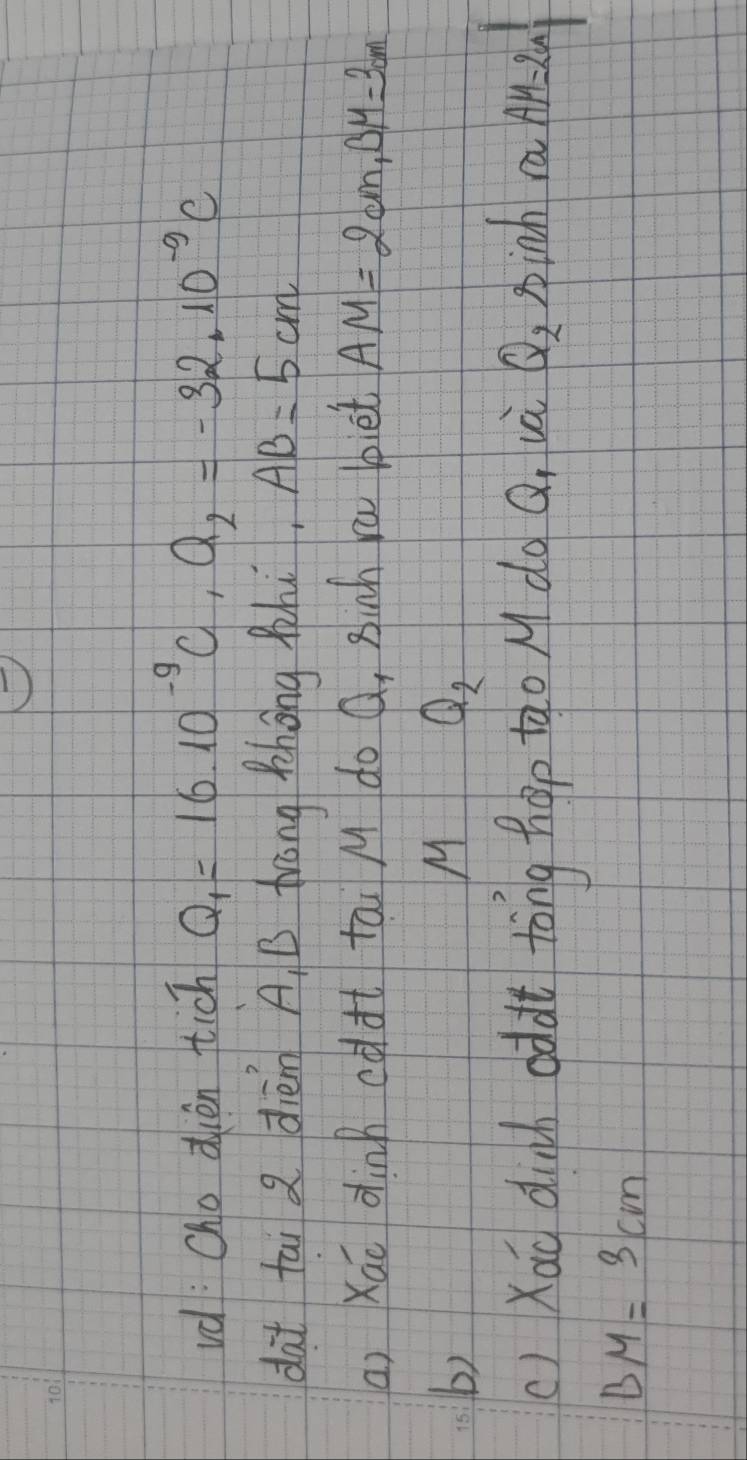 vd: Cho điện tích Q₁ = 16.10⁻⁹ C, Q₂ = -32.10⁻⁹ C
đặt tại 2 điểm A,B trong không khí, AB = 5 cm
a) Xác định cđđt tại M do Q₁ sinh ra biết AM = 2cm, BM = 3cm
b) M Q₂
c) Xác định cđđt tổng hợp tạo M do Q₁ và Q₂ sinh ra AM = 2cm
BM = 3 cm
10
15